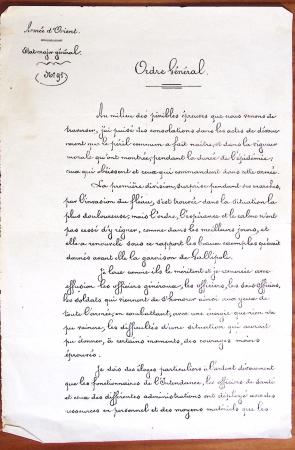 Armée d'Orient.
Etat-major général.
N° 95
Ordre Général.
Au milieu des pénibles épreuves que nous venons de
traverser, j'ai puisé des consolations dans les actes de dévoue-
ment que le péril commun a fait naître, et dans la vigueur
morale qu'ont montrée, pendant la durée de l'épidémie,
ceux qui obéissent et ceux qui commandent dans cette armée.
La première division, surprise pendant ses marches,
par l'invasion du fléau, s'est trouvée dans la situation la
plus douloureuse; mais l'ordre, l'espérance et le calme n'ont
pas cessé d'y régner, comme dans les meilleurs jours, et
elle a renouvelé sous ce rapport les beaux exemples qu'avait
donnés avant elle la garnison de Gallipoli.
Je loue comme ils le méritent et je remercie avec
effusion les officiers généraux, les officiers, les sous-officiers,
les soldats qui viennent de s'honorer ainsi aux yeux de
toute l'armée, en combattant, avec une énergie que rien n'a
pu vaincre, les difficultés d'une situation qui aurait
pu donner, à certains moments, des courages moins
éprouvés.
Je dois des éloges particuliers à l'ardent dévouement
que les fonctionnaires de l'Intendance, les officiers de santé
et ceux des différentes administrations ont déployé avec des
ressources en personnel et des moyens matériels que les